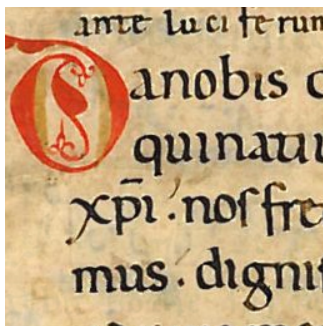 ante luciferum
Danobis
quinatiu
xp̄i. noſfre
mus. digniſ